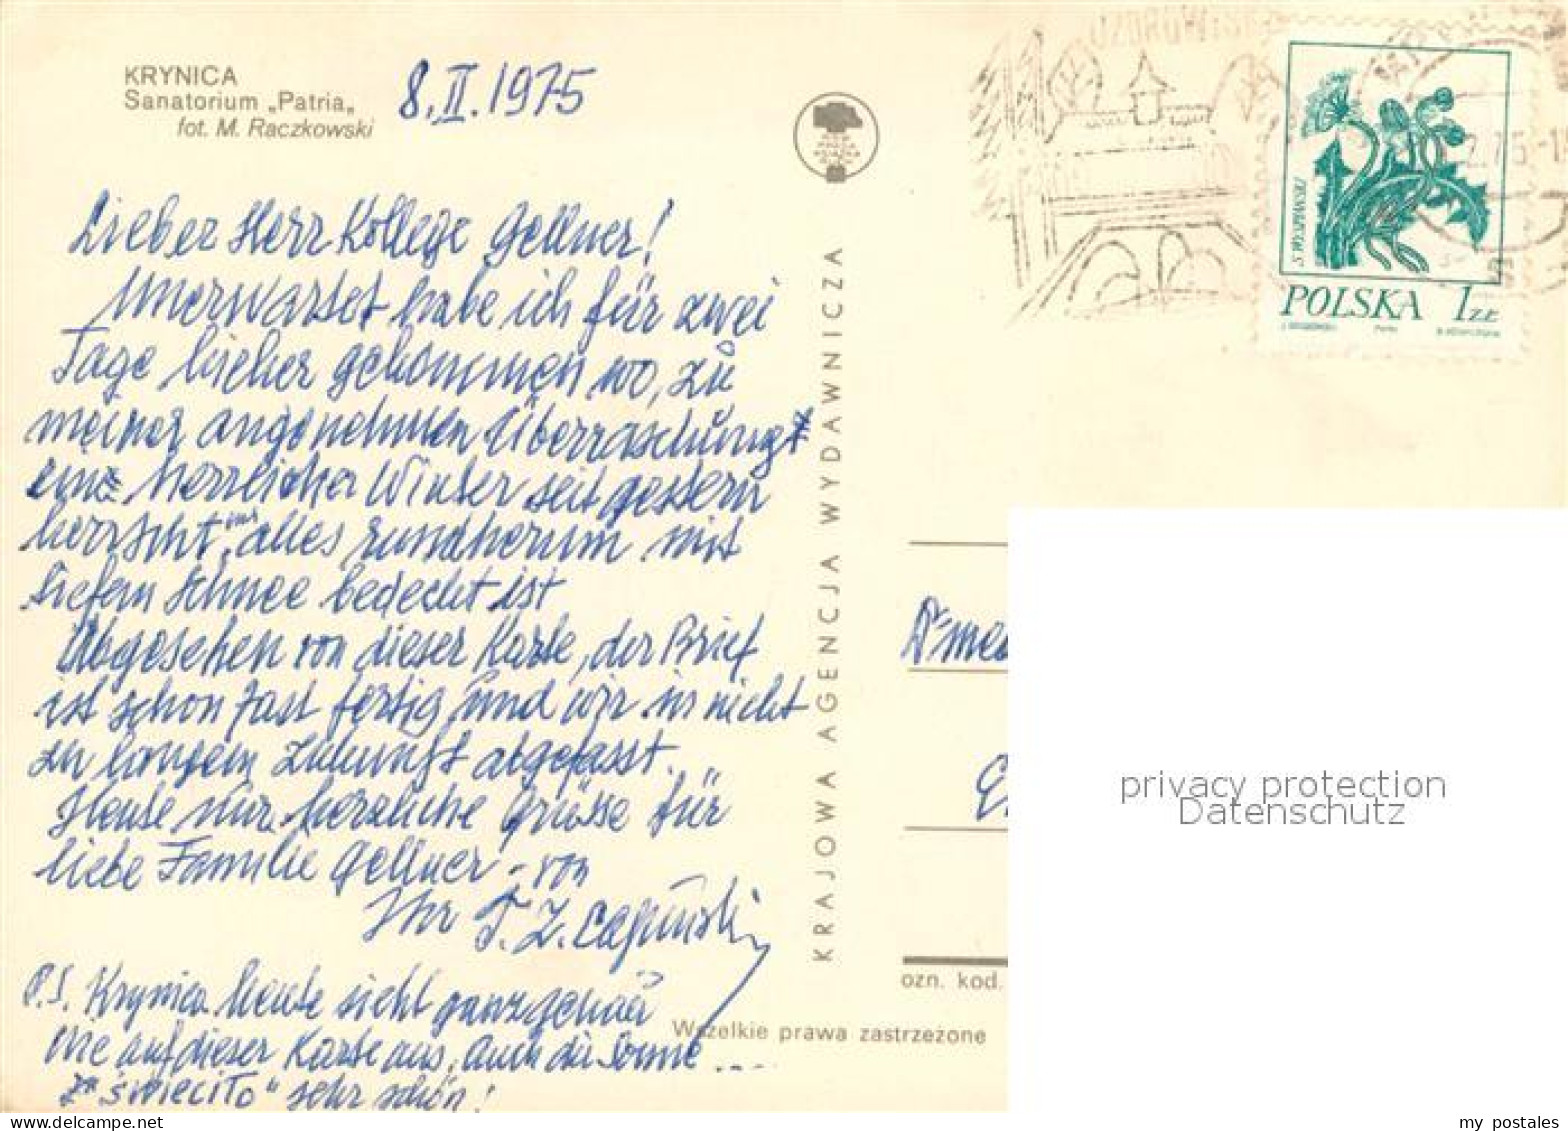 KRYNICA
Sanatorium „Patria„
fot. M. Raczkowski
8.II.1975
Lieber Herr Kollege Gellner!
Unerwartet habe ich für zwei
Tage hieher gekommen wo, zu
meiner angenehmen Überraschung
ein herrlicher Winter seit gestern
herrscht, alles rundherum mit
tiefem Schnee bedeckt ist
Abgesehen von dieser Karte, der Brief
ist schon fast fertig und wir in nicht
zu langem Zukunft abgefasst.
Heute nur herzliche Grüsse für
liebe Familie Gellner - von
Ihr T. Z.
P.S. Krynica heute sieht ganz genau
wie auf dieser Karte aus, auch die Sonne ....
"świeciło" sehr schön!
KRAJOWA AGENCJA WYDAWNICZA
S. WYSPIAŃSKI
POLSKA 1 ZŁ
Dr med
ozn. kod.
Wszelkie prawa zastrzeżone
privacy protection
Datenschutz
my postales